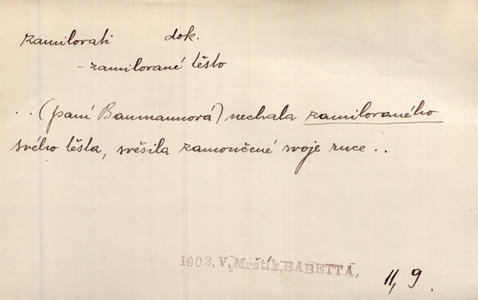 zamilovati dok.
- zamilované těsto
.. (paní Baumannová) nechala zamilovaného
svého těsta, svěsila zamoučené svoje ruce ..
1902, V. Mrštík, BABETTA,
II, 9.